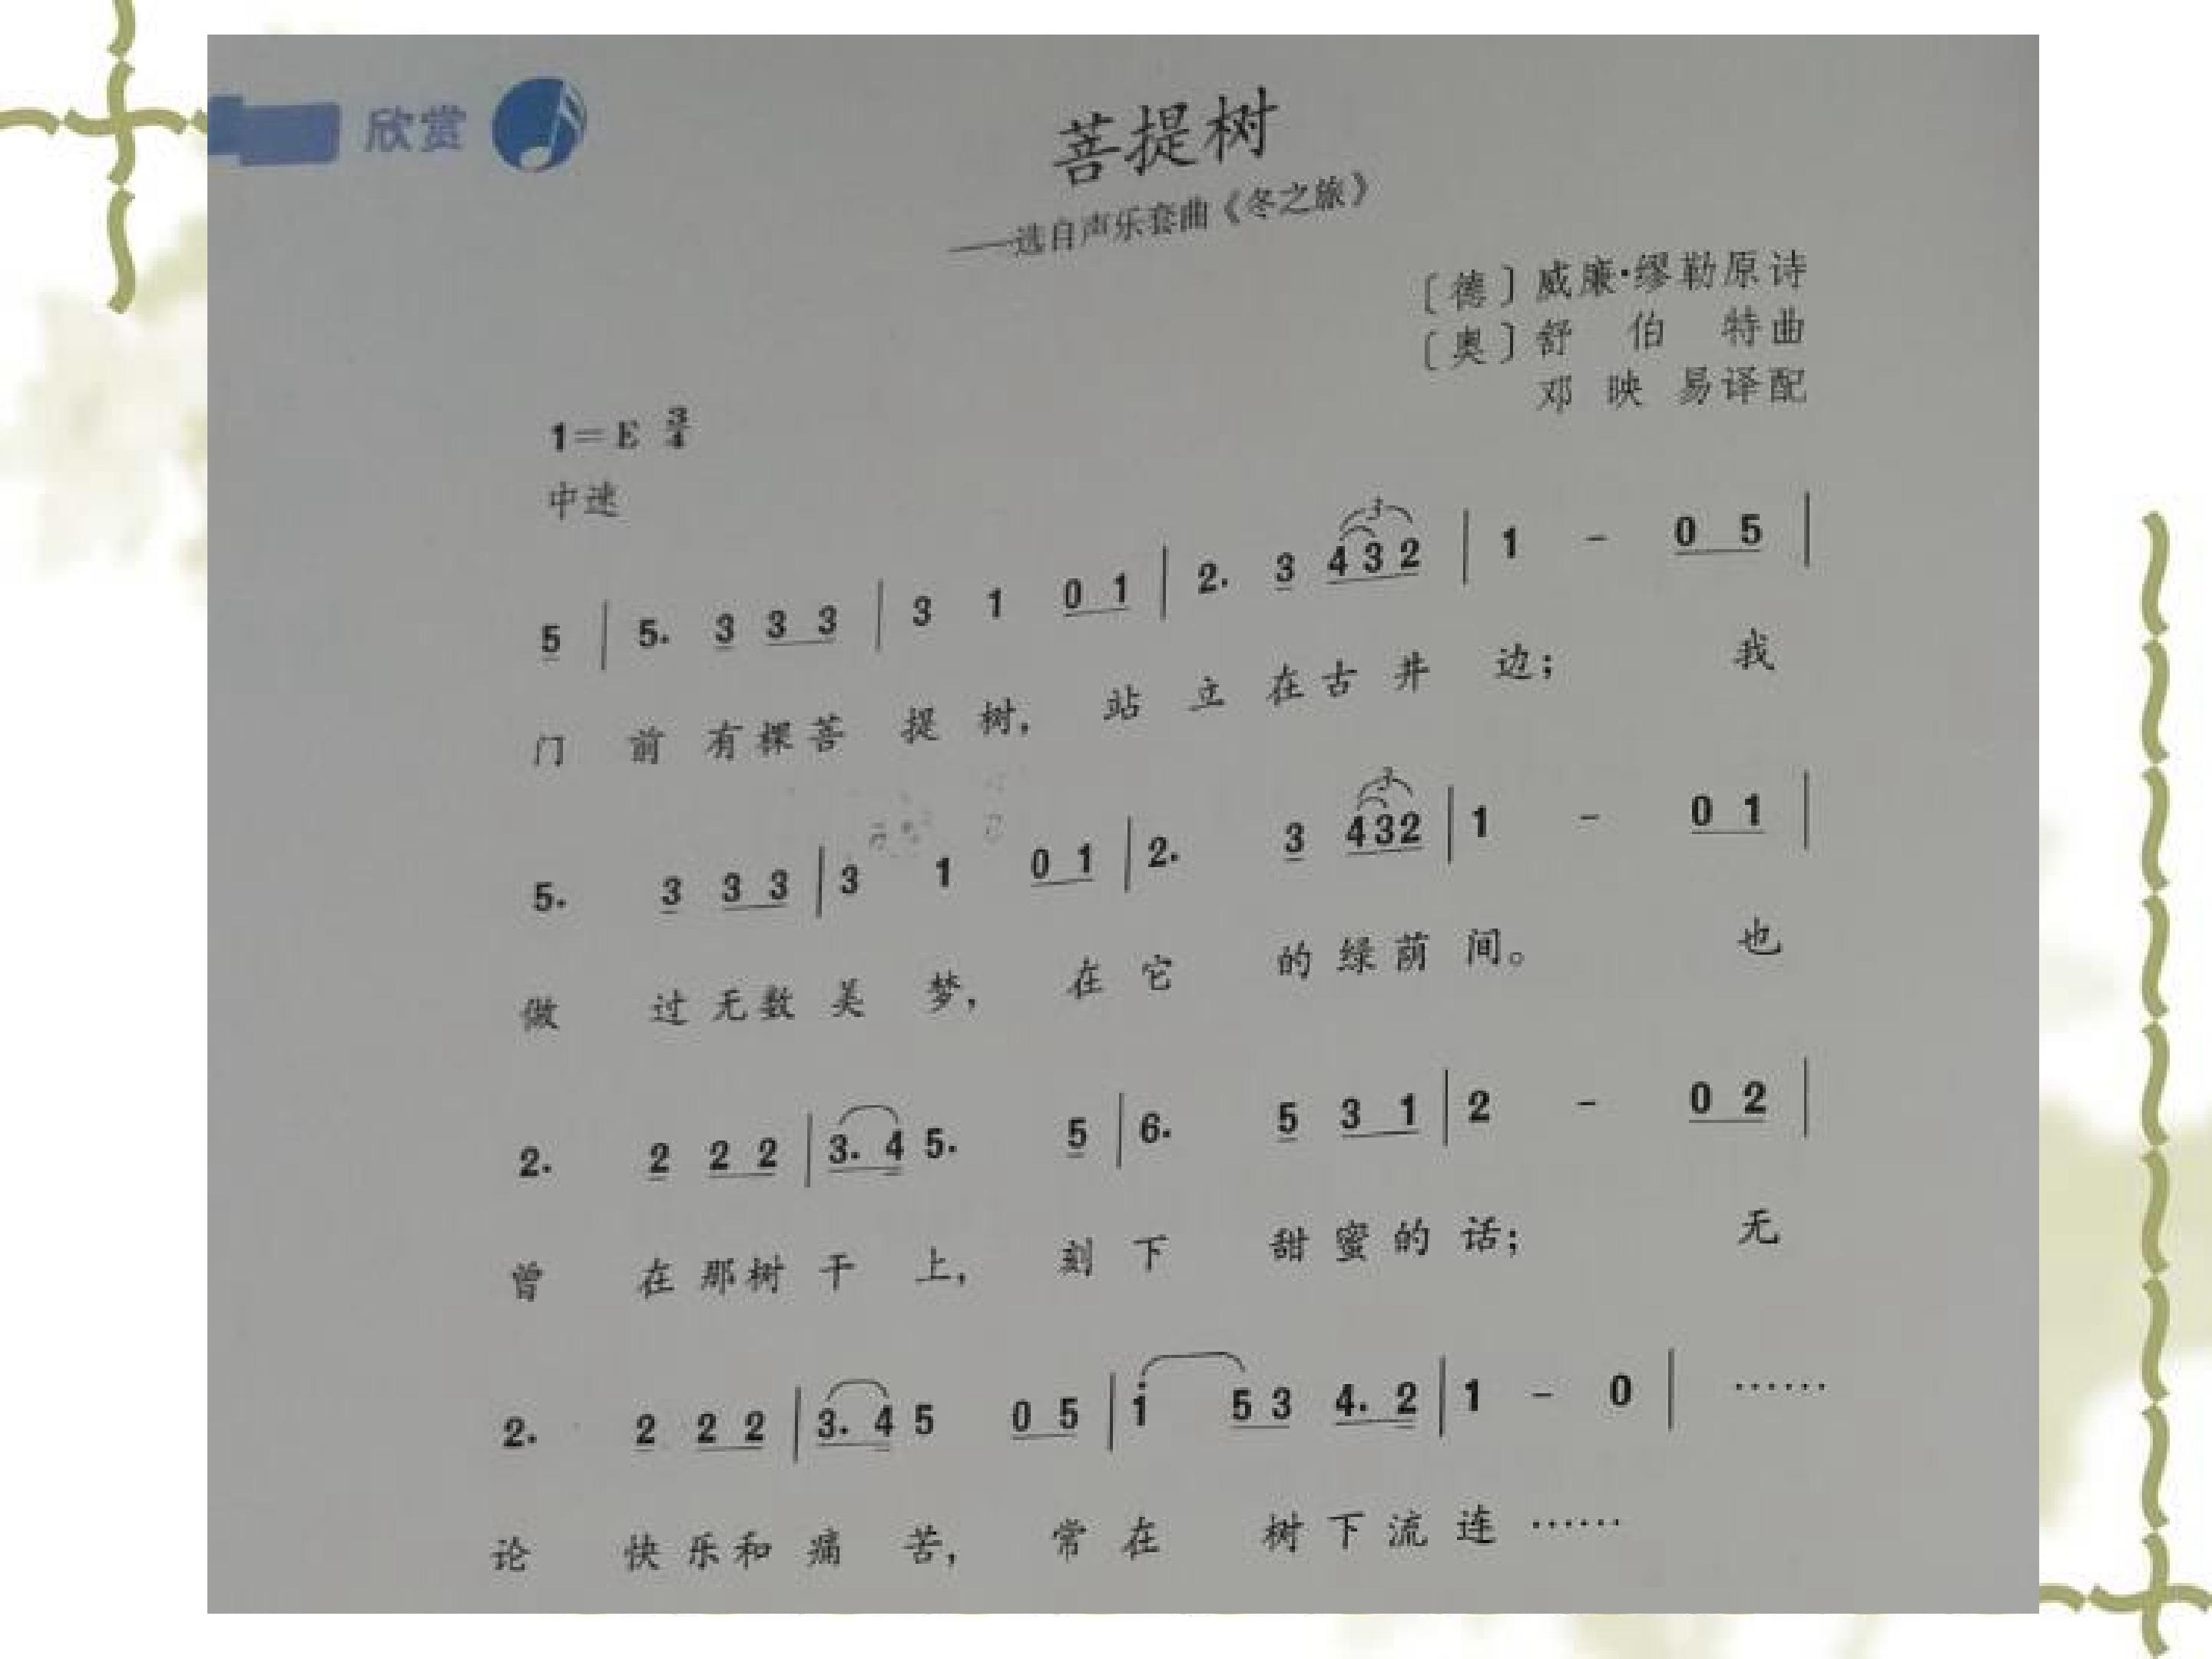 欣赏
菩提树
——选自声乐套曲《冬之旅》
〔德〕威廉·缪勒原诗
〔奥〕舒 伯 特曲
邓 映 易译配
1=E 3/4
中速
5 | 5. 3 3 3 | 3 1 0 1 | 2. 3 4 3 2 | 1 - 0 5 |
门 前 有棵菩 提 树， 站 立 在古 井 边； 我
5. 3 3 3 | 3 1 0 1 | 2. 3 432 | 1 - 0 1 |
做 过无数 美 梦， 在 它 的绿荫 间。 也
2. 2 2 2 | 3. 4 5. 5 | 6. 5 3 1 | 2 - 0 2 |
曾 在那树 干 上， 刻 下 甜蜜的 话； 无
2. 2 2 2 | 3. 4 5 0 5 | i 5 3 4. 2 | 1 - 0 | ……
论 快乐和 痛 苦， 常 在 树下流 连……